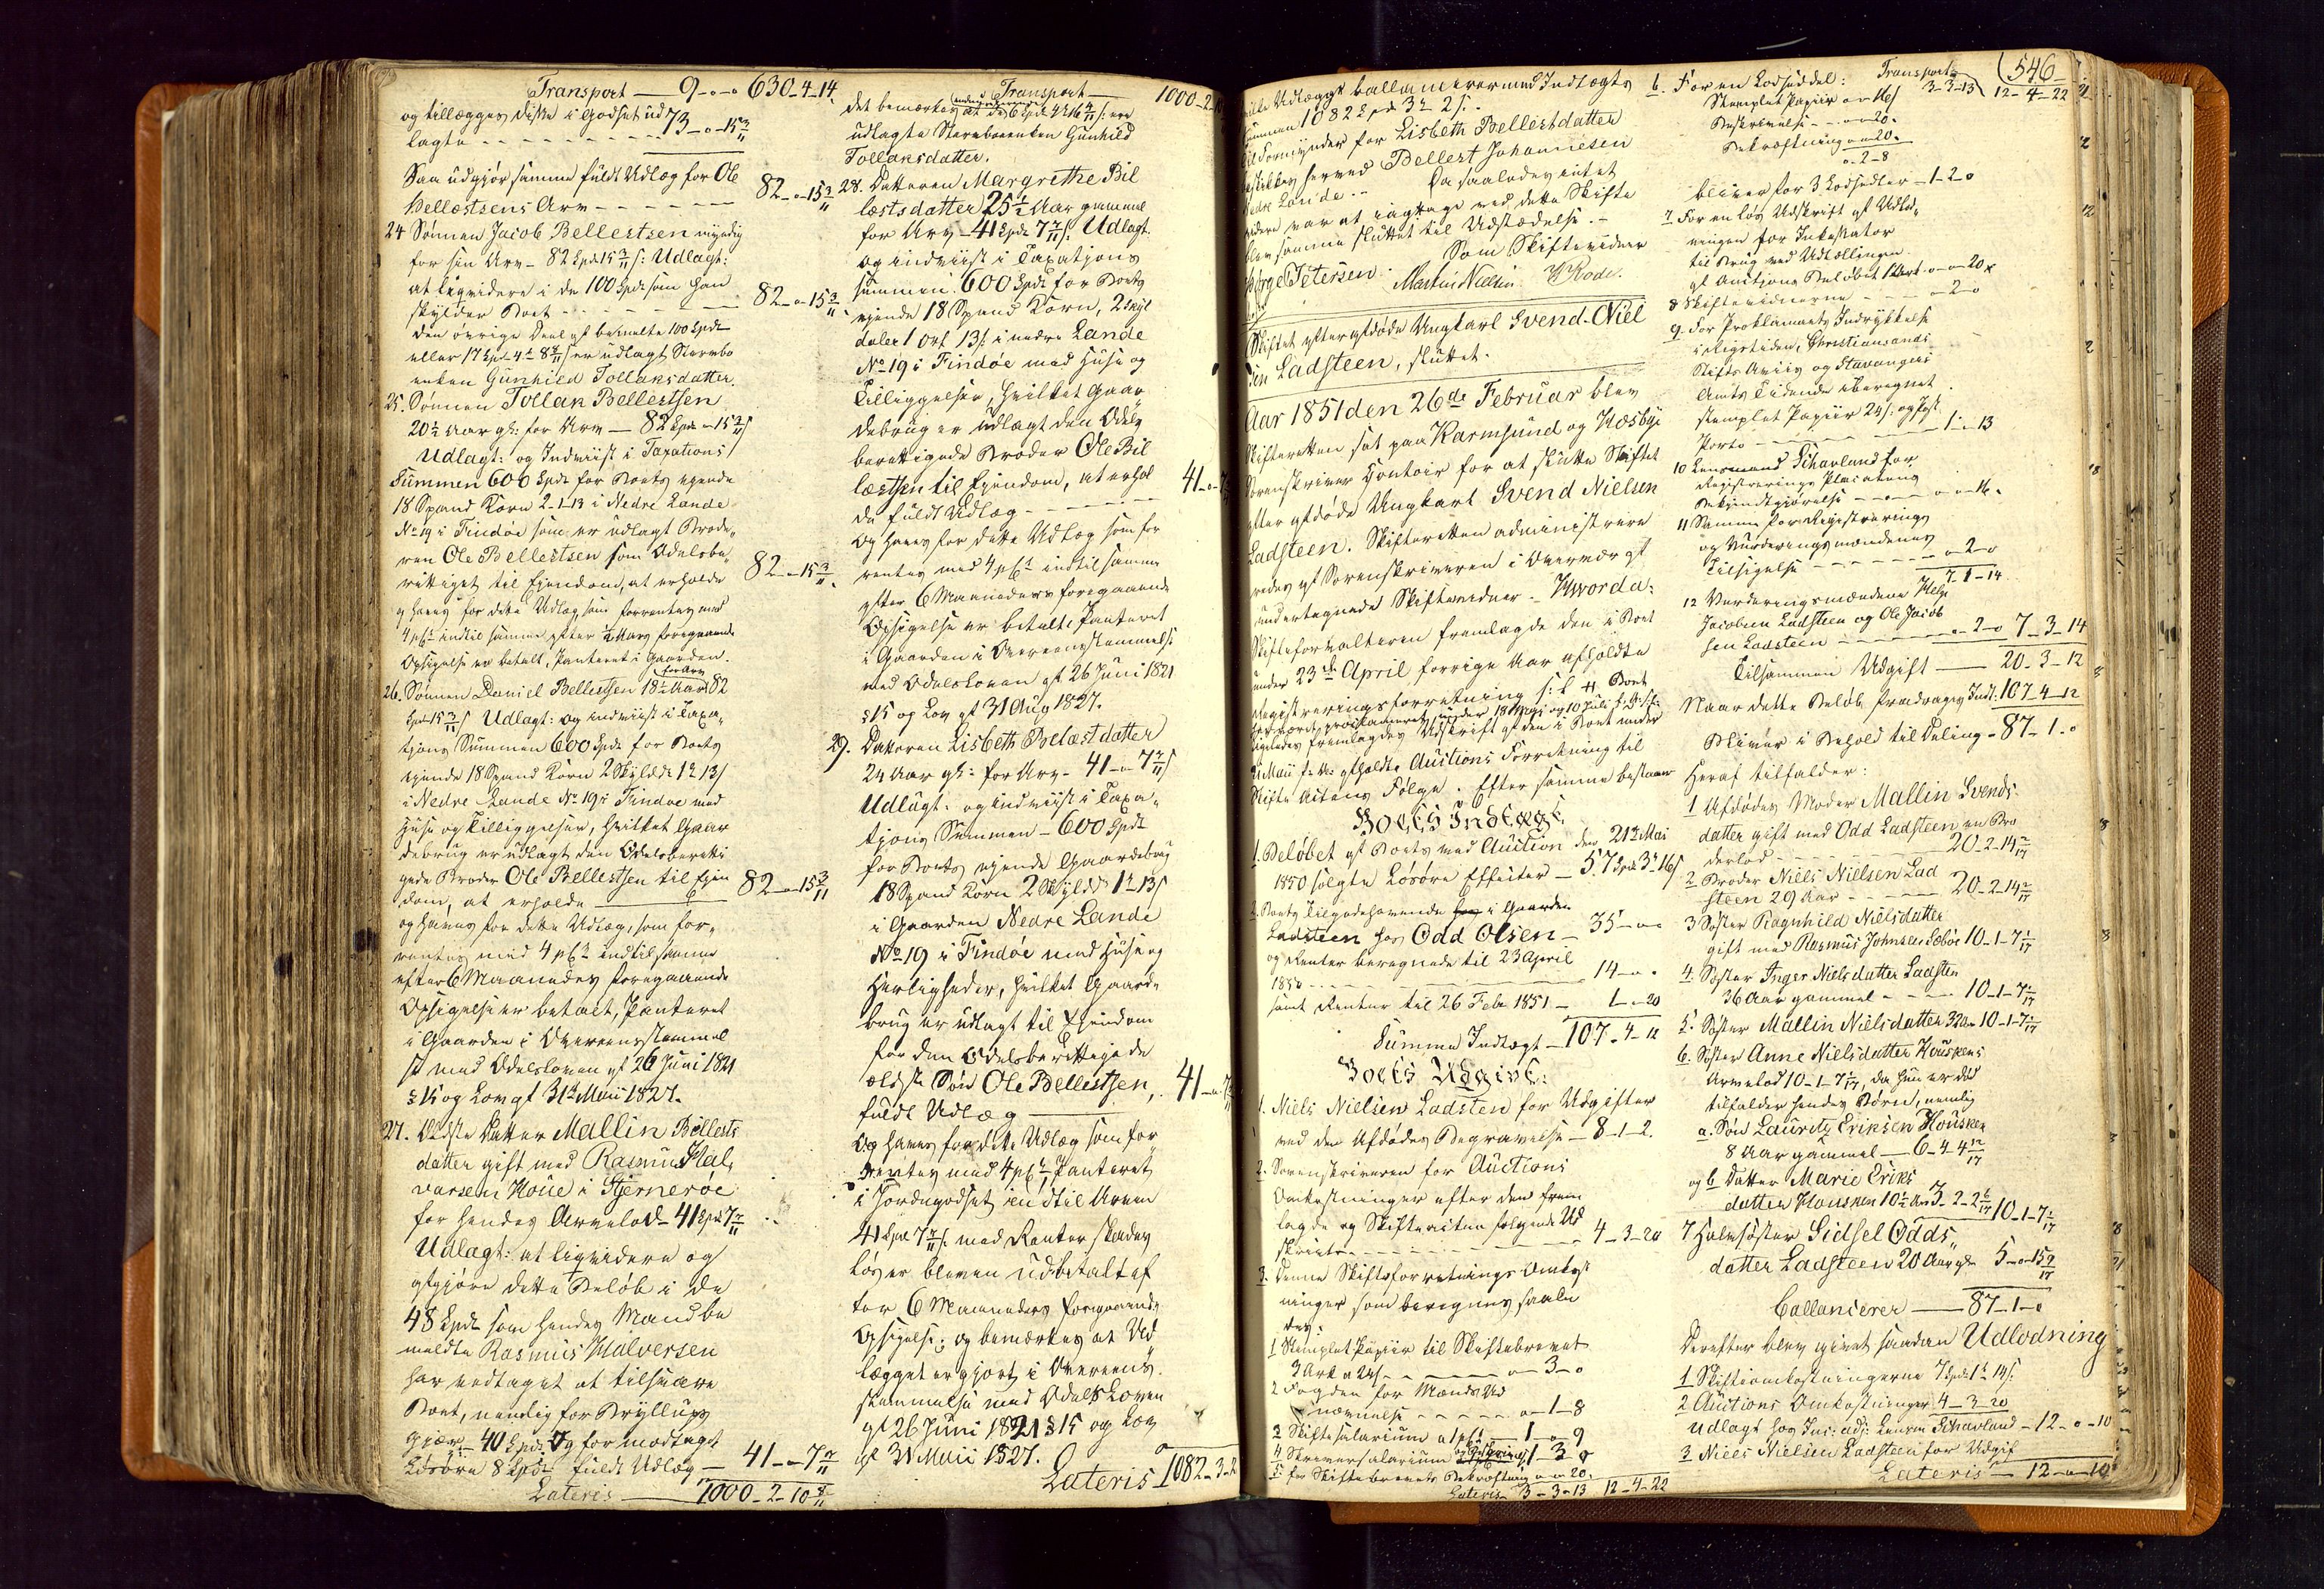 Transport — 9 - o - o 630-4-14
og tillægges disse i Godset ud
lagte - - - - - 73 - o - 15 3/11
Saa udgjør samme fuldt Udlæg for Ole
Bellestsens Arv - - - - - - 82 - o - 15 3/11
24 Sønnen Jacob Bellestsen myndig
for sin Arv - 82 Spd 15 3/11 s: Udlagt:
at liqvidere i de 100 Spd som han
skylder Boet - - - - - - 82 - o - 15 3/11
den øvrige Deel af bemeldte 100 Spd
eller 17 Spd 4 8 8/11 s er udlagt Stervbo
enken Gunhild Tollaksdatter.
25. Sønnen Tollak Bellestsen
20 1/2 Aar gl: for Arv — 82 Spd - 15 3/11 s
Udlagt: og Indviist i Taxations
Summen 600 Spd for Boets eiende
18 Spand Korn 2-1-13 i Nedre Lande
No 19 i Findøe som er udlagt Brode,,
ren Ole Bellestsen som Odelsbe,,
rettiget til Ejendom, at erholde 82 - o - 15 3/11
og haves for dette Udlæg, som forrentes med
4 pCt indtil samme efter 1/2 Aars foregaaende
Opsigelse er betalt, Panteret i Gaarden.
26. Sønnen Daniel Bellestsen 18 1/2 Aar for Arv 82
Spd 15 3/11 s Udlagt: og indviist i Taxa,,
tions Summen 600 Spd for Boets
eiende 18 Spand Korn 2 Skyldd 1 13 s
i Nedre Lande No 19 i Findøe med
Huse og Tilliggelser, hvilket Gaar
debrug er udlagt den Odelsberetti
gede Broder Ole Bellestsen til Ejen
dom, at erholde — 82 - o - 15 3/11
og haves for dette Udlæg, som for,,
rentes med 4 pCt indtil samme
efter 6 Maaneders foregaaende
Opsigelse er betalt, Panteret
i Gaarden i Overeensstemmel
se med Odelsloven af 26 Juni 1821
§ 15 og Lov af 31te Maii 1827.
27. Ældste Datter Mallin Bellests
datter gift med Rasmus Hal,,
vorsen Houe i Stjernerøe
for hendes Arvelod - 41 Spd 7 7/11
Udlagt: at liqvidere og
afgjøre dette Beløb i de
48 Spd som hendes Mand be
meldte Rasmus Halversen
har vedtaget at tilsvare
Boet, nemlig for Bryllups
Gjær 40 Spd. Og for modtagt
Løsøre 8 Spd fuldt Udlæg — 41 - o - 7 7/11
Lateris — 1000 - 2 - 10 8/11
Transport — 1000 - 2 - 10
det bemærkes at de 6 Spd 4 16 4/11 s: ere
udlagte Stervboeenken Gunhild
Tollaksdatter.
28. Datteren Margrethe Bil
læstsdatter 25 1/2 Aar gammel
for Arv - 41 Spd 7 7/11 s: Udlagt.
og indviist i Taxations
summen 600 Spd for Boets
eiende 18 Spand Korn, 2 Skyl
daler 1 Ort 13 s: i nedre Lande
No 19 i Findøe med Huse og
Tilliggelser, hvilket Gaar
debrug er udlagt den Odels
berettigede Broder Ole Bil
læstsen til Ejendom, at erhol
de fuldt Udlæg - - - - - 41 - o - 7
Og haves for dette Udlæg som for
rentes med 4 pCt indtil samme
efter 6 Maaneders foregaaende
Opsigelse er betalt, Panteret
i Gaarden i Overeenstemmelse
med Odelsloven af 26 Juni 1821
§ 15 og Lov af 31 Aug 1827.
29. Datteren Lisbeth Belæstdatter
24 Aar gl: for Arv - 41 - o - 7 7/11 s
Udlagt. og indviist i Taxa,,
tions Summen - 600 Spd
for Boets eiende Gaardebrug
18 Spand Korn 2 Skyldd 1 13 s
i Gaarden Nedre Lande
No 19 i Findøe med Huse og
Herligheder, hvilket Gaarde
brug er udlagt til Ejendom
for den Odelsberettigede
ældste Søn Ole Bellestsen, 41 - o - 7/11
fuldt Udlæg —
Og haves for dette Udlæg som for
rentes med 4 pCt, Panteret
i Jordegodset indtil Arven
41 Spd 7 7/11 s: med Renter skades
løs er bleven udbetalt ef
ter 6 Maaneders foregaaende
Opsigelse; og bemærkes at Ud
lægget er gjort i Overeens
stemmelse med Odels Loven
af 26 Juni 1821 § 15 og Lov
af 31 Maii 1827.
Lateris 1082 - 3 - 2
Udlægget ballancerer med Indtægts
summen 1082 Spd 3 2 s.
Til Formynder for Lisbeth Bellestdatter
beskikkes herved Bellest Johannesen
Nedre Lande. - Da saaledes intet
videre var at iagttage ved dette Skifte
blev samme sluttet til Udstædelse. -
Som Skiftevidner
Petersen. Martin Nielsen H Rode.
Skiftet efter afdøde Ungkarl Svend Niel
sen Ladsteen, sluttet.
Aar 1851 den 26de Februar blev
Skifteretten sat paa Karmsund og Hesbye
Sorenskriver Contoir for at slutte Skiftet
efter afdøde Ungkarl Svend Nielsen
Ladsteen. Skifteretten administrere
redes af Sorenskriveren i Overvær af
undertegnede Skiftevidner - Hvorda:
Skifteforvalteren fremlagde den i Boet
under 23de April forrige Aar afholdte
Registreringsforretning s: l H. Boet
er vordt proclameret under 18 Maj og 10 Juli
ligeledes fremlagdes Udskrift af den i Boet under
21 Maii f: A: afholdte Auctions Forretning til
Skifte Actens Følge. Efter samme bestaaer
Boets Indtægt
1. Beløbet af Boets ved Auction den 21de Mai
1850 solgte Løsøre Effecter — 57 Spd 3 16 s
2. Boets Tilgodehavende i Gaarden
Ladsteen hos Odd Olsen - 35 - o - o
og Renter beregnede til 23 April
1850 - - - - - 14 - o - o
samt Renter til 26 Febr 1851 - 1 - o - 20
Summa Indtægt — 107 - 4 - 12
Boets Udgivt:
1. Niels Nielsen Ladsten for Udgifter
ved den Afdødes Begravelse - 8 - 1 - 2.
2. Sorenskriveren for Auctions
Omkostninger efter den frem
lagde og Skifteacten følgende Ud
skrivt - - - - - 4 - 3 - 20
3. Denne Skifteforretnings Omkost
ninger som beregnes saale
des:
1 Stemplet Papiir til Skiftebrevet
3 Ark a 24 s - - - o - 3 - o
2 Fogden for Mænds Ud
nævnelse - - - - - o - 1 - 8
3 Skiftesalarium a 1 pCt — 1 - o - 9
4 Skriversalarium 1 - 3 - o
5 for Skiftebrevets Bekræftning o - o - 20.
Lateris 3 - 3 - 13 12 - 4 - 22
546
Transport 3-3-13 12-4-22
6. For en Lodseddel:
Stemplet Papiir o - o - 16 s
Beskrivelse - - o - o - 20.
Bekræftning o - o - 20.
o - 2 - 8
bliver for 3 Lodsedler - 1 - 2 - o
7 For en løs Udskrift af Udlod,,
ningen for Inkassator
til Brug ved Udtællingen
af Auctions Beløbet 1 Ark - o - o - 20
8 Skiftevidnerne - - - o - 2 - o
9. For Proklamaets Indrykkelse
i Rigstiden, Christiansands
Stifts Aviis og Stavangers
Amts Tidende iberegnet
stemplet Papiir 24 s: og Post
Porto - - - - - 1 - o - 13
10 Lensmand Schavland for
Registrerings Placatens
Bekjendtgjørelse - - - o - o - 16.
11 Samme for Registrerings
og Vurderingsmændenes
Tilsigelse - - - - - o - 2 - o
7 - 1 - 14
12 Vurderingsmændene Helge
Jacobsen Ladsteen og Ole Jacob
sen Ladsteen - - - o - 2 - o 7 - 3 - 14
Tilsammen Udgift — 20 - 3 - 12
Naar dette Beløb fradrages Indt. 107 - 4 - 12
Bliver i Behold til Deling - 87 - 1 - o
Heraf tilfalder:
1 Afdødes Moder Mallin Svends
datter gift med Odd Ladsteen en Bro
derlod - - - - - 20 - 2 - 14 2/17
2 Broder Niels Nielsen Lad
steen 29 Aar - - - - 20 - 2 - 14 2/17
3 Søster Ragnhild Nielsdatter
gift med Rasmus Johnsen Sæbøe 10 - 1 - 7 1/17
4. Søster Inger Nielsdatter Ladsten
36 Aar gammel - - - - 10 - 1 - 7 1/17
5. Søster Mallin Nielsdatter 32 Aar 10 - 1 - 7 1/17
6. Søster Anne Nielsdatter Houskens
Arvelod 10 - 1 - 7 1/17, da hun er død
tilfalder hendes Børn, nemlig
a. Søn Lauritz Eriksen Housken
8 Aar gammel — 6 - 4 - 4 12/17
og b Datter Marie Eriks
datter Housken 10 1/2 Aar 3 - 2 - 2 6/17 10 - 1 - 7 1/17
7 Halvsøster Sidsel Odds,,
datter Ladsteen 20 Aar gl 5 - o - 15 9/17
Ballancerer — 87 - 1 - o
Derefter blev givet saadan Udlodning
1 Skifteomkostningerne 7 Spd 1 14 s:
2 Auctions Omkostninger 4 - 3 - 20
Udlagt hos Ins: adj: Lensm Schavland - 12 - o - 10
3 Niels Nielsen Ladsteen for Udgif
Lateris — 12 - o - 10